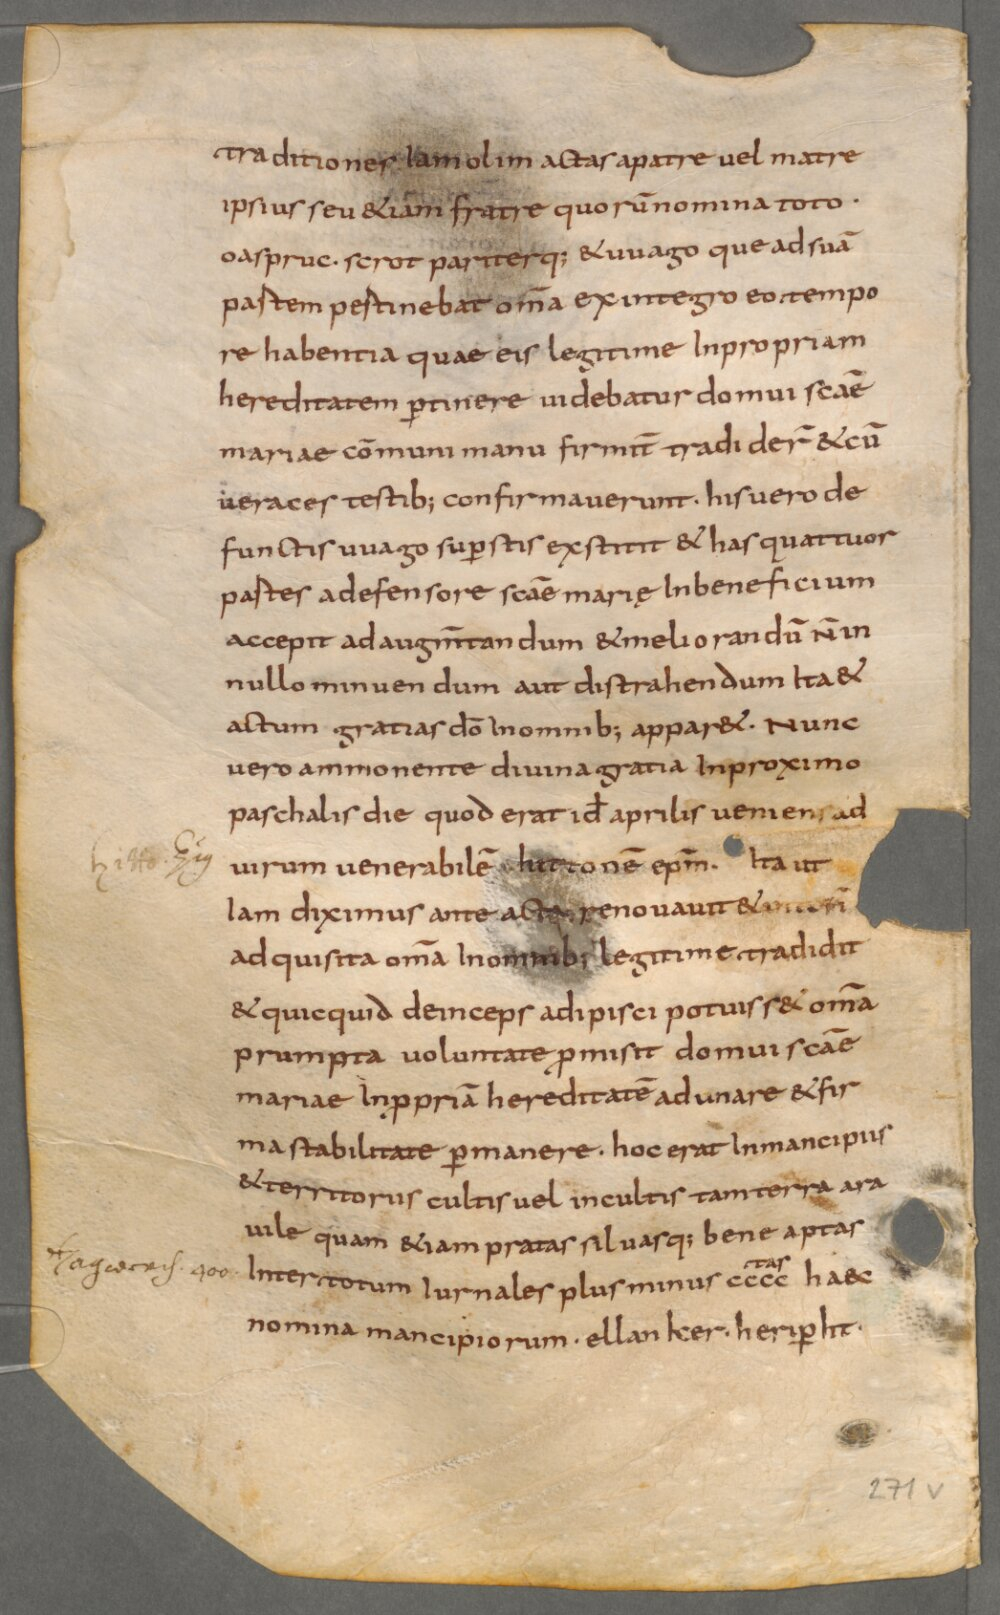 traditiones Iam olim actas apatre uel matre
ipsius seu &iam fratre quorū nomina toto ·
oaspruc · scrot pariterq; & uuago que ad suā
partem pertinebat om̄a ex integro eo tempo
re habentia quae eis legitime In propriam
hereditatem ꝑtinere uidebatur domui scāe
mariae cōmuni manu firmit̄ tradider̄ & cū
ueraces testib; confirmauerunt · his uero de
functis uuago suꝑstis exstitit & has quattuor
partes a defensore scāe marię In beneficium
accepit ad augm̄tandum & meliorandū N̄ in
nullo minuendum aut distrahendum Ita &
actum gratias dō In omnib; appar& · Nunc
uero ammonente diuina gratia In proximo
paschalis die quod erat id̄ aprilis ueniens ad
uirum uenerabilē hittonē ep̄m · Ita ut
Iam diximus ante acta renouauit &
adquisita om̄a In omnib; legitime tradidit
& quicquid deinceps adipisci potuiss& om̄a
prumpta uoluntate ꝓmisit domui scāe
mariae In ꝓpriā hereditatē adunare & fir
ma stabilitate ꝑmanere · hoc erat In mancipiis
& territoriis cultis uel incultis tam terra ara
uile quam &iam pratas siluasq; bene aptas
Inter totum Iurnales plus minus cccc tas haec
nomina mancipiorum · ellanker · heriꝑht ·
hitto
400
271 v